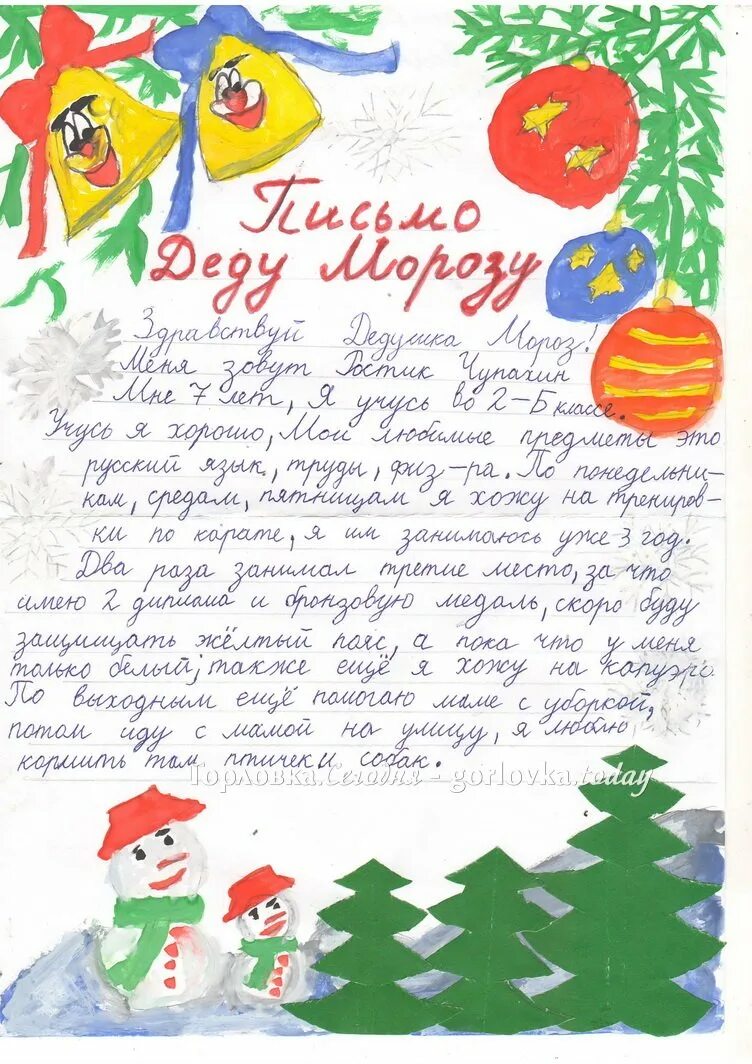 Письмо
Деду Морозу
Здравствуй Дедушка Мороз!
Меня зовут Ростик Чупахин
Мне 7 лет, Я учусь во 2-Б классе.
Учусь я хорошо, Мои любимые предметы это
русский язык, труды, физ-ра. По понедельни-
кам, средам, пятницам я хожу на трениров-
ки по карате, я им занимаюсь уже 3 год.
Два раза занимал третие место, за что
имею 2 диплама и бронзовую медаль, скоро буду
защищать жёлтый пояс, а пока что у меня
только белый, также ещё я хожу на капуэро
По выходным ещё помогаю маме с уборкой,
потом иду с мамой на улицу, я люблю
кормить там птичек и собак.
Горловка.Сегодня - gorlovka.today